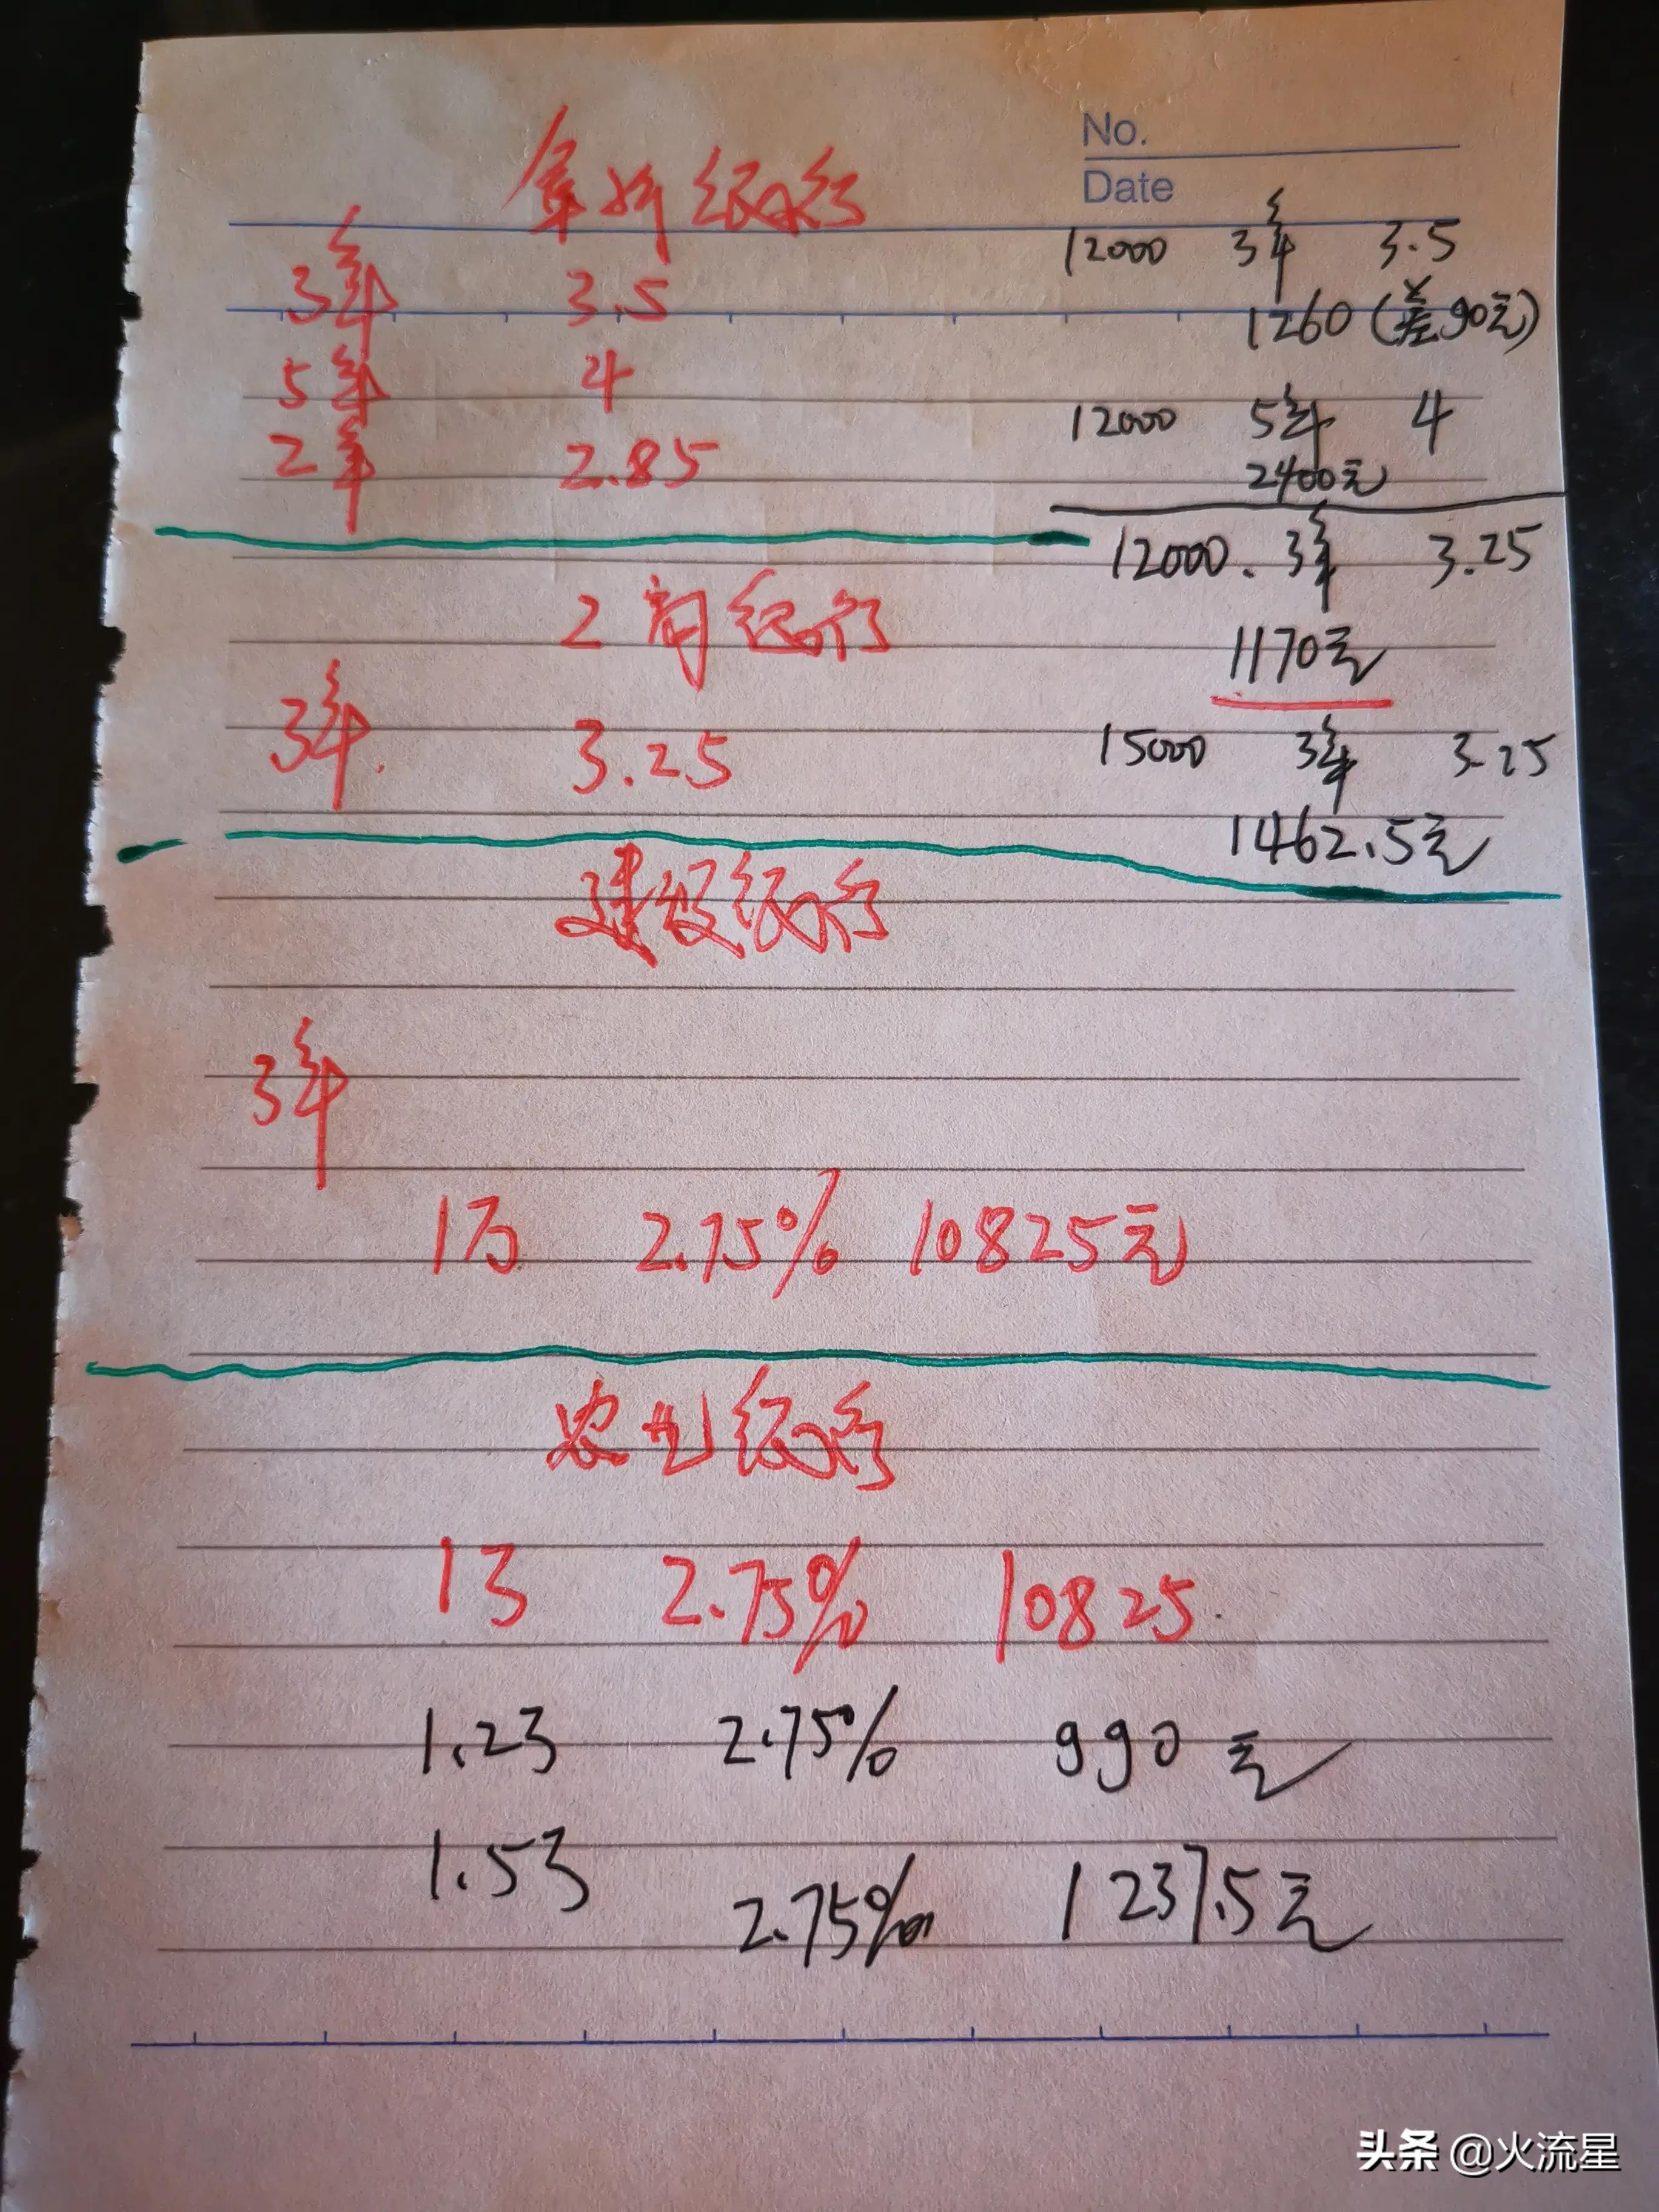 阜新银行
3年 3.5
5年 4
2年 2.85
No.
Date
12000 3年 3.5
1260(差90元)
12000 5年 4
2400元
12000. 3年 3.25
1170元
15000 3年 3.25
1462.5元
工商银行
3年. 3.25
建设银行
3年
1万 2.75% 10825元
农业银行
1万 2.75% 10825.
1.2万 2.75% 990元
1.5万 2.75% 1237.5元
头条 @火流星